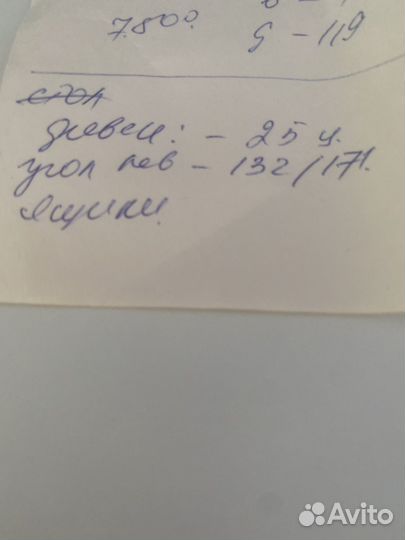 7.800.
5 - 119
стол
диван: - 25 ч.
угол лев - 132/171.
Ящики
Avito